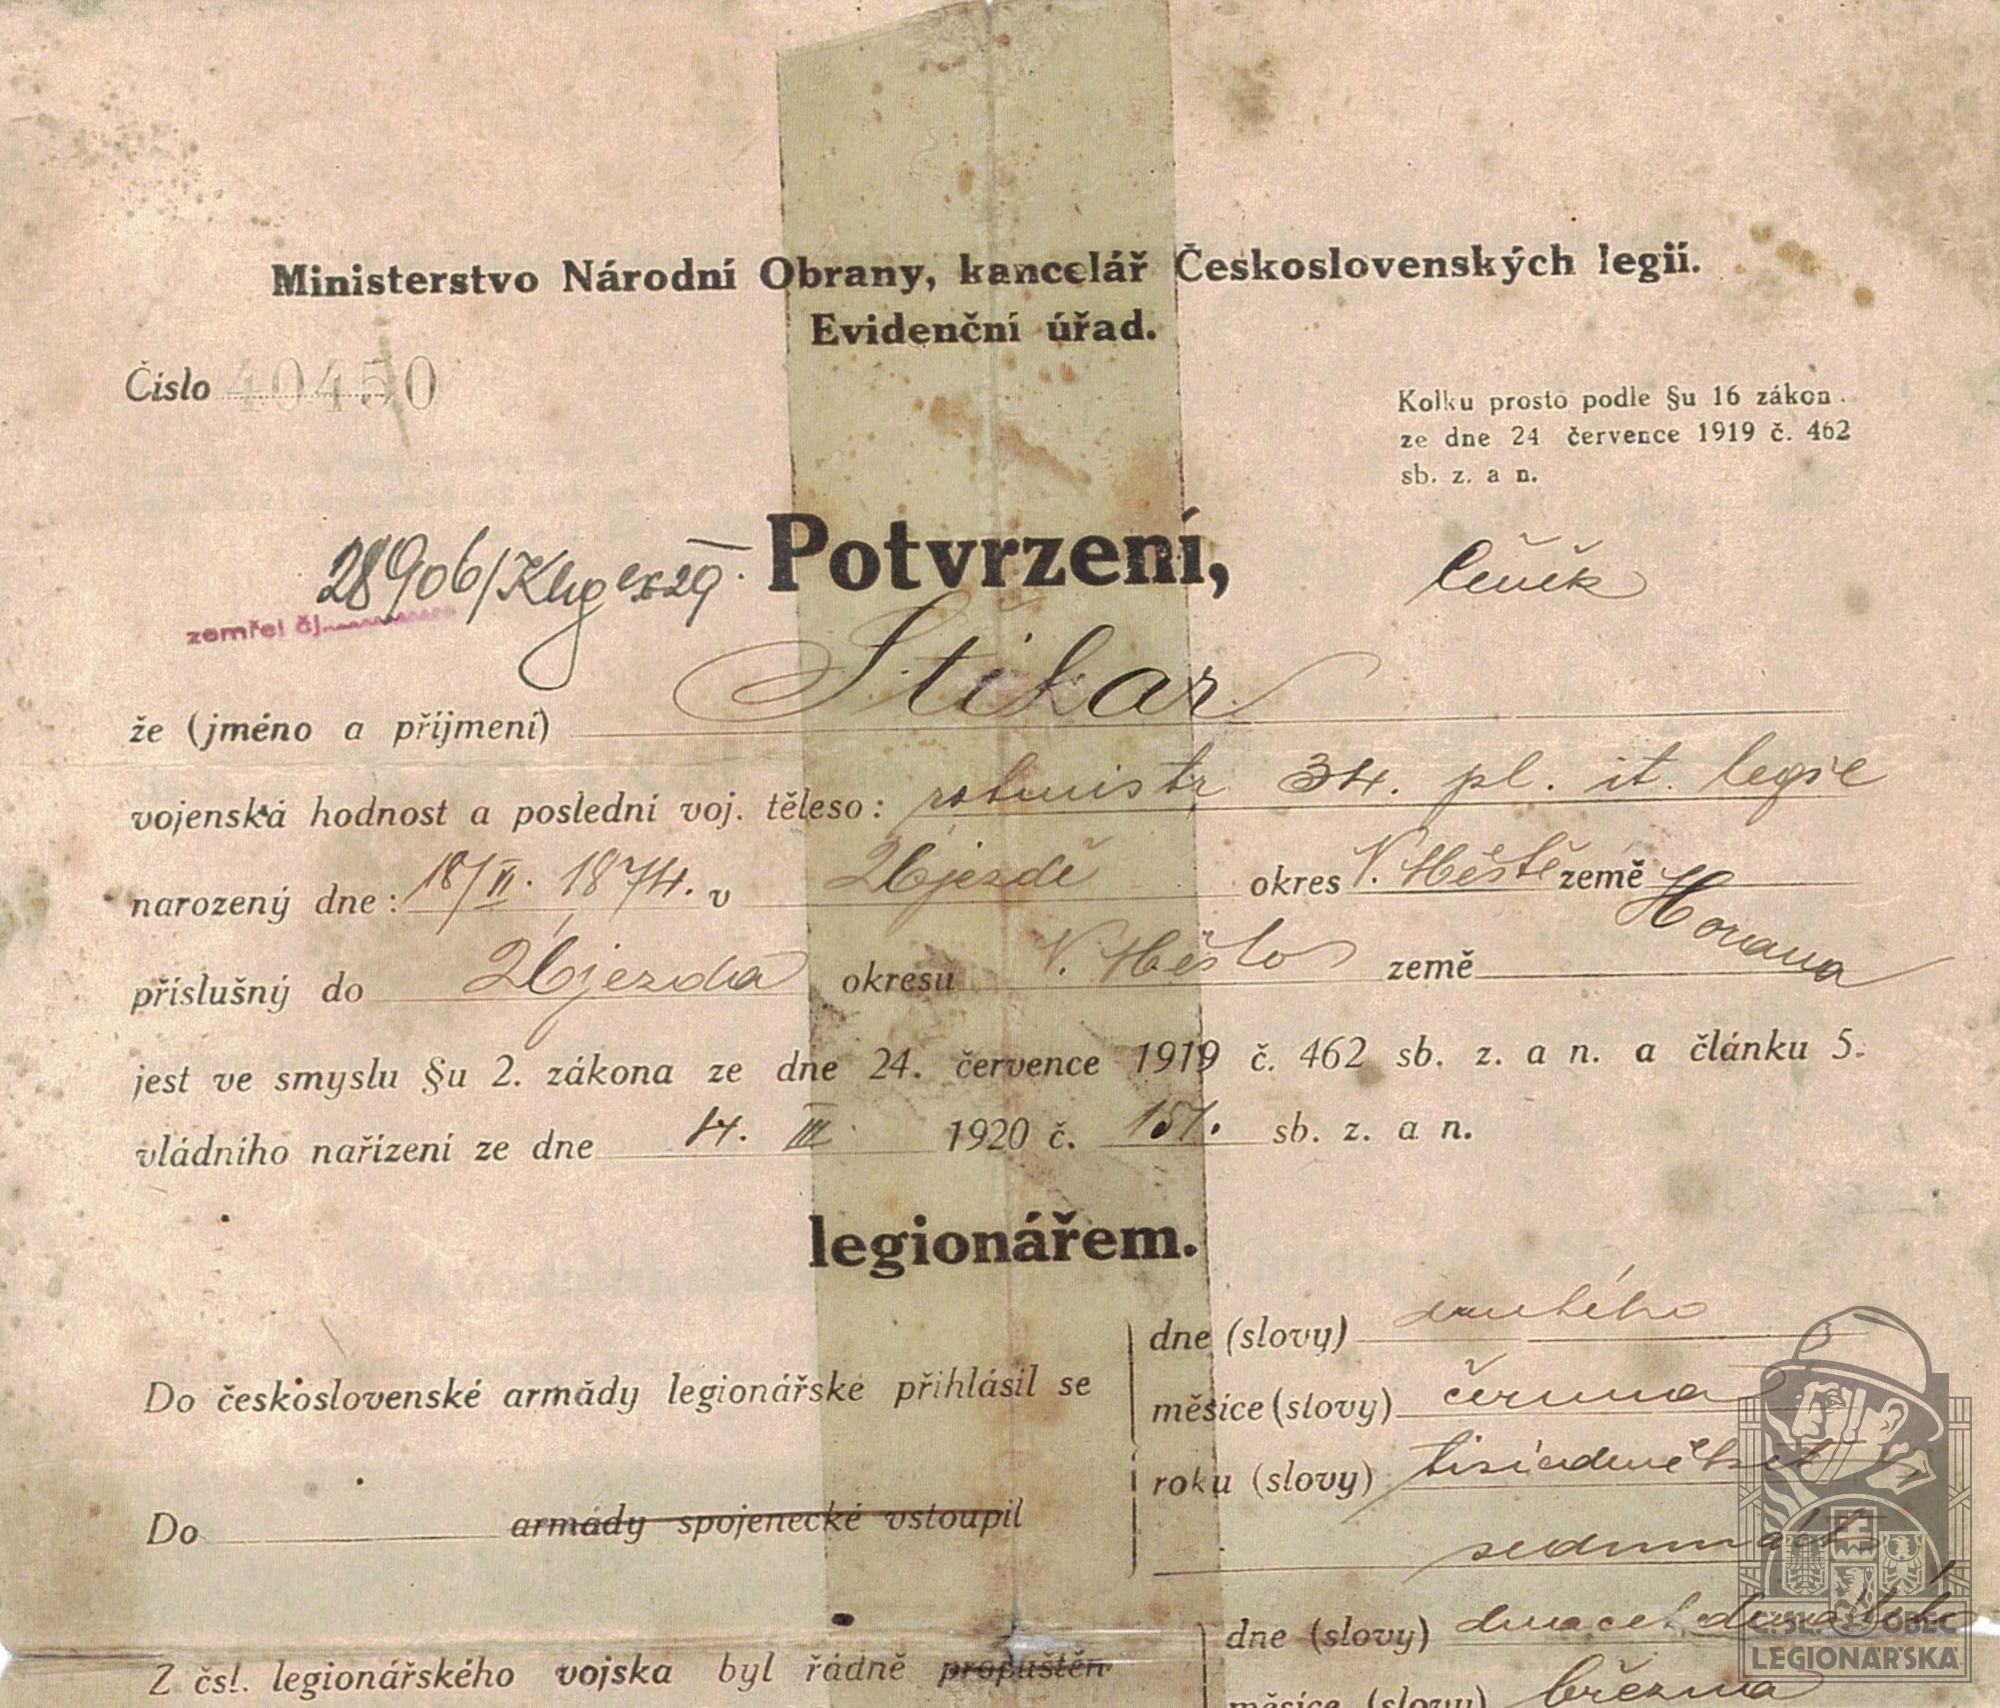 Ministerstvo Národní Obrany, kancelář Československých legií.
Evidenční úřad.
Číslo 40450
Kolku prosto podle §u 16 zákon.
ze dne 24 července 1919 č. 462
sb. z. a n.
Potvrzení,
28906/
zemřel čj.
Čeněk
Štikar
že (jméno a příjmení)
vojenská hodnost a poslední voj. těleso: rotmistr 34. pl. it. legie
narozený dne: 18/II. 1874. v Újezdě okres N. Městě země Morava
příslušný do Újezda okresu N. Město země
jest ve smyslu §u 2. zákona ze dne 24. července 1919 č. 462 sb. z. a n. a článku 5.
vládního nařízení ze dne 14. III. 1920 č. 151. sb. z. a n.
legionářem.
Do československé armády legionářské přihlásil se
dne (slovy) druhého
měsíce (slovy) června
roku (slovy) tisícdevětset
sedmnáct
Do armády spojenecké vstoupil
Z čsl. legionářského vojska byl řádně propuštěn
dne (slovy)
měsíce (slovy) března
ČSL. OBEC
LEGIONÁŘSKÁ